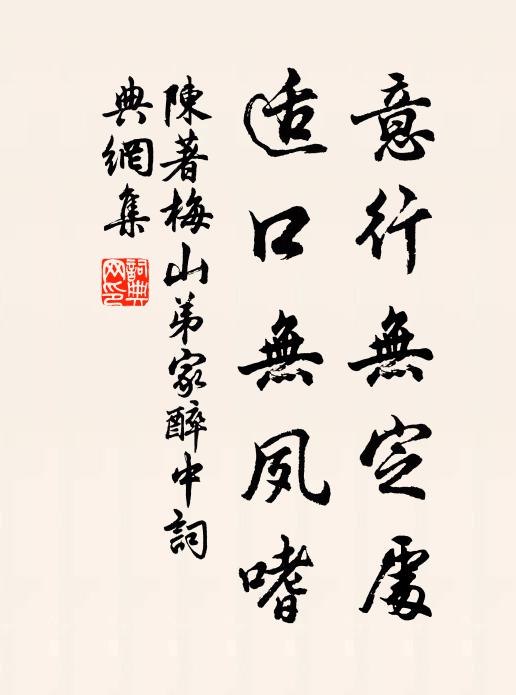 意行無定處
適口無夙嗜
陳著梅山弟家醉中詞
典網集
詞典網印